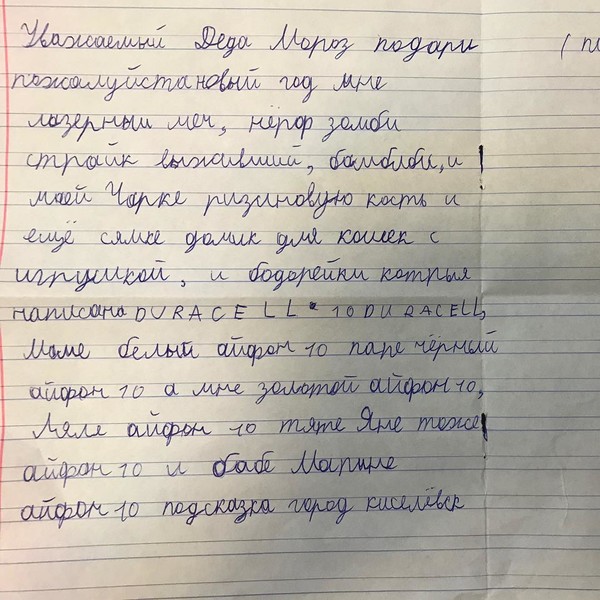 Уважаемый Деда Мороз подари
пожалуйста новый год мне
лазерный меч, нёрф зомби
страйк выживший, бамблби, и
маей Чарке ризиновую кость и
ещё сямке домик для кошек с
игрушкой, и бодорейки котрыя
написана DURACELL 10 DURACELL,
Маме белый айфон 10 папе чёрный
айфон 10 а мне золотой айфон 10,
Ляле айфон 10 тяте Яне тоже
айфон 10 и бабе Марине
айфон 10 подсказка город киселёвск